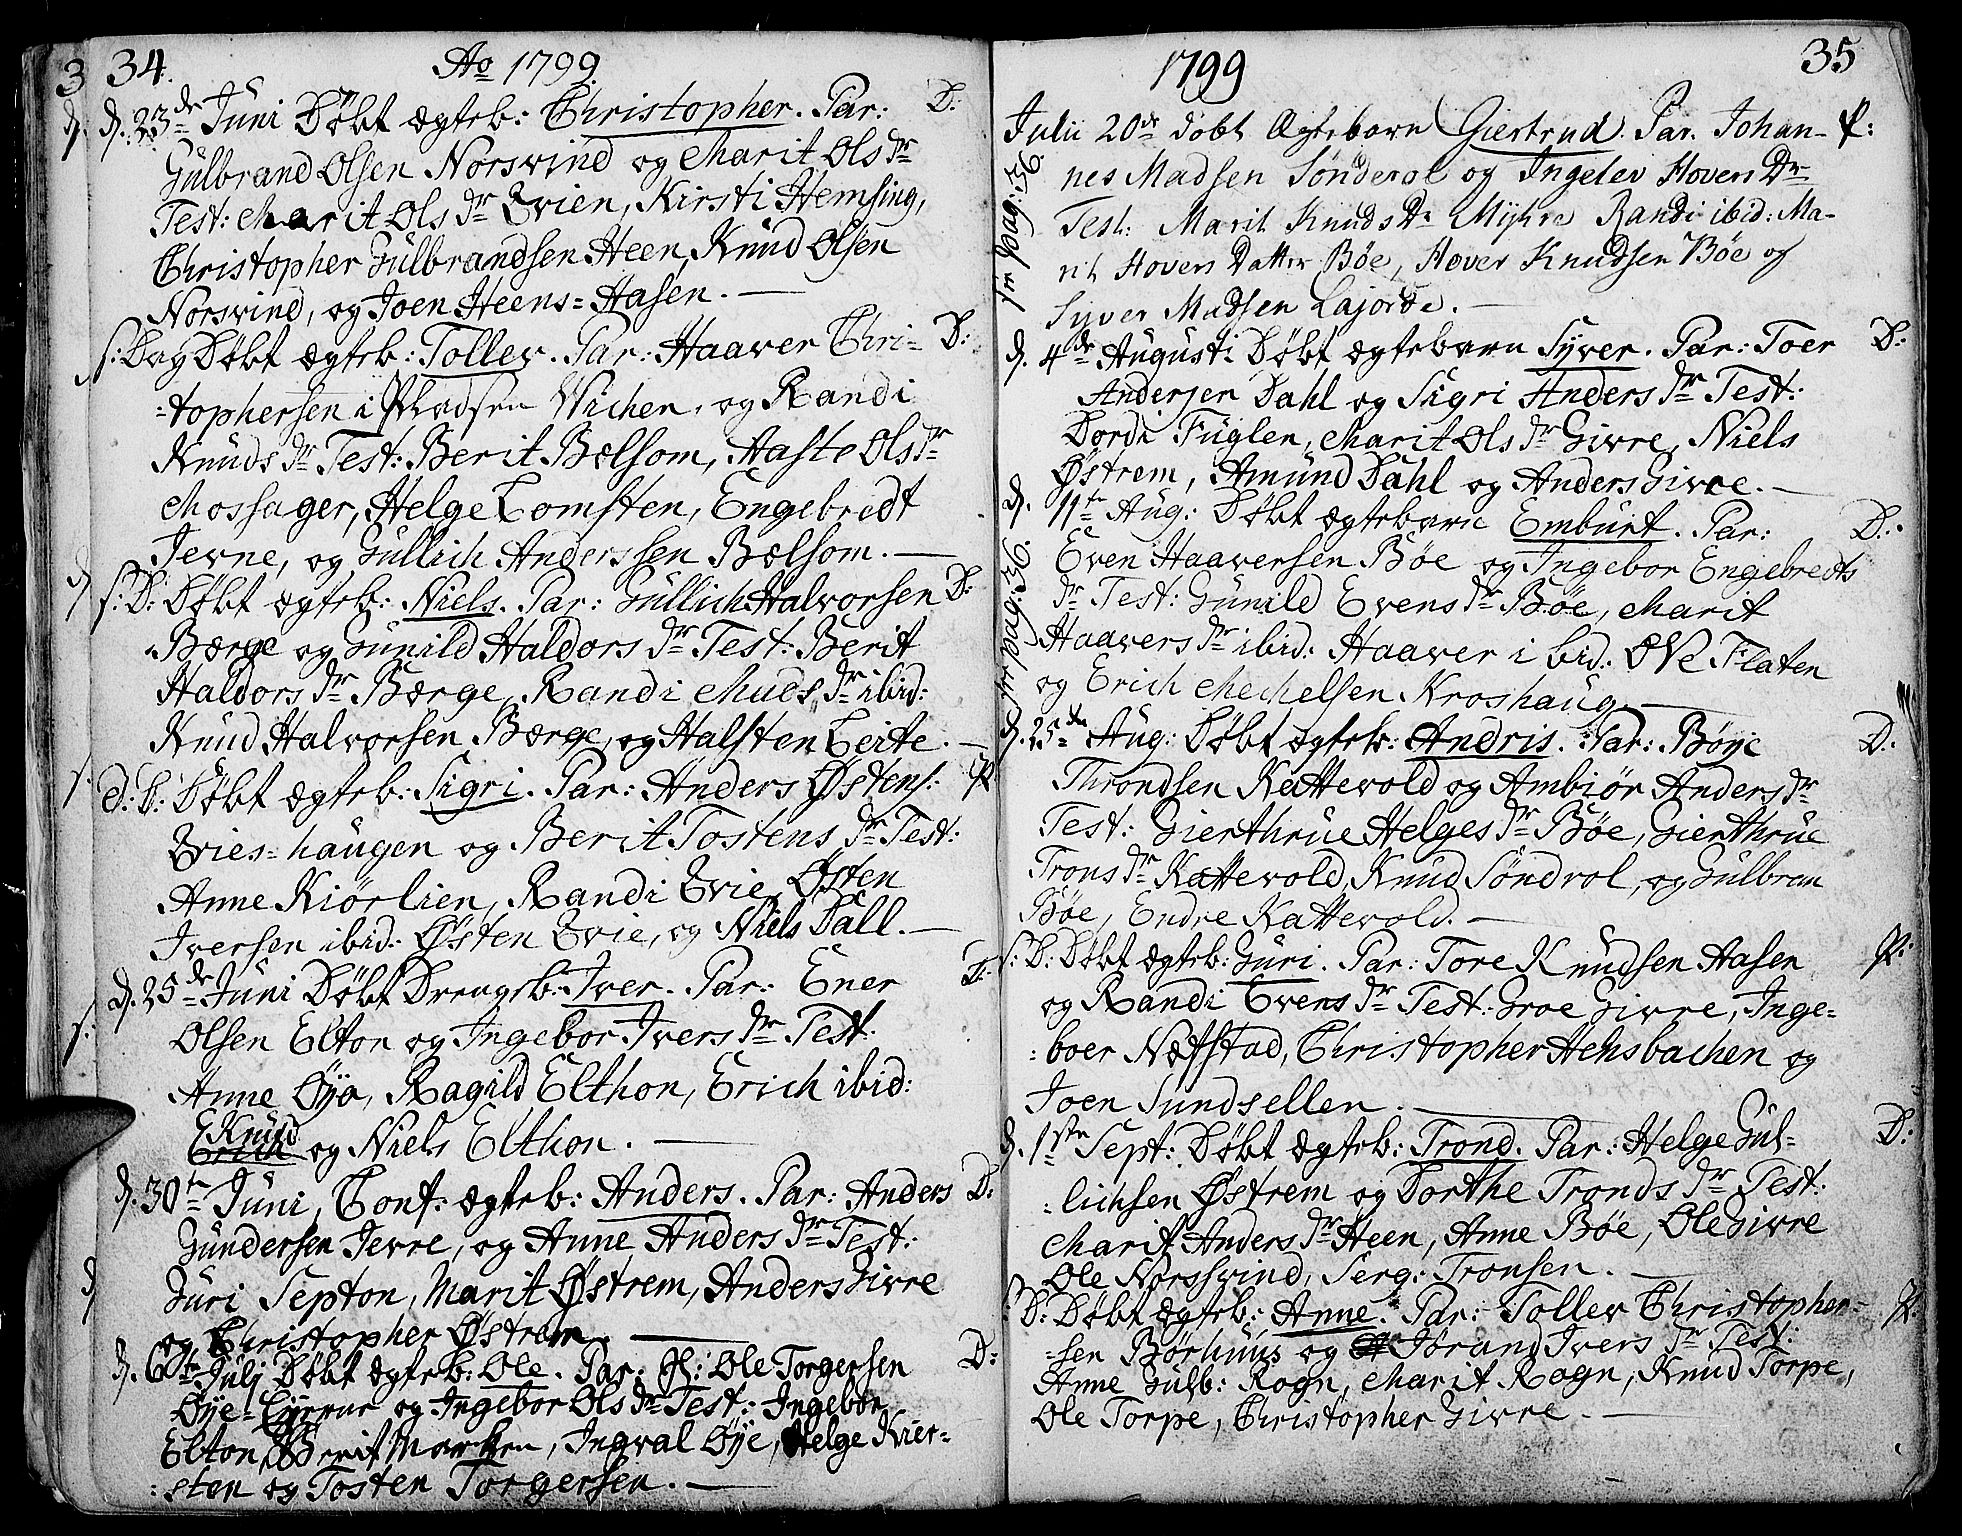 34. Ao 1799.
d. 23de Juni Døbt ægteb: Christopher. Par: D:
Gulbrand Olsen Norsvind og Marit Olsdr
Test: Marit Olsdr Evien, Kirsti Hemsing,
Christopher Gulbrandsen Heen, Knud Olsen
Norsvind, og Joen Heens=Aasen. —
s: Dag Døbt ægteb: Tollev. Par: Haaver Chri= D:
=tophersen i Wichen, og Randi
Knudsdr Test: Berit Bælsom, Aaste Olsdr
Mossager, Helge Lomsten, Engebredt
Jevne, og Gullich Anderssen Bælsom. —
s: D: Døbt ægteb: Niels. Par: Gullich Halvorsen D:
Børge og Gunild Haldorsdr Test: Berit
Haldorsdr Børge, Randi dr ibid:
Knud Halvorsen Børge, og Halsten Leite. —
d: D: Døbt ægteb: Sigri. Par: Anders Østens: P
Evies=haugen og Berit Tostensdr Test:
Anne Kiørlien, Randi Evie, Østen
Iversen ibid: Østen Evie, og Niels Dall. —
d. 25de Juni Døbt Drengeb: Iver. Par: Ener D:
Olsen Elton og Ingebor Iversdr Test:
Anne Øya, Ragild Elthon, Erich ibid:
Knud
Erich og Niels Elthon. —
d. 30te Juni, Conf: ægteb: Anders. Par: Anders D:
Gundersen Jevre, og Anne Andersdr Test:
Guri Septon, Marit Østrem, Anders Givre
og Christopher Østrem. —
d. 6te Julj Døbt ægteb: Ole. Par: Ole Torgersen D:
Øye= og Ingebor Olsdr Test: Ingebor
Elton, Berit Marken, Ingval Øye, Helge Kier=
=sten og Tosten Torgersen. —
1799 35
Julii 20de døbt Ægtebarn Giertrud. Par. Johan- P:
nes Madsen Sønderol og Ingelev Hovers Dr
Test: Marit Knuds Dr Myhre Randi ibid: Ma-
rit Hovers Datter Bøe, Hover Knudsen Bøe og
Syver Madsen Lajorde. —
pag: 36.
d. 4de Augusti Døbt ægtebarn Syver. Par: Toer D:
Andersen Dahl og Sigri Andersdr Test:
Dordi Fuglen, Marit Olsdr Givre, Niels
Østrem, Amund Dahl og Anders Givre. —
d. 11te Aug: Døbt ægtebarn Emburt. Par: D:
Even Haaversen Bøe og Ingebor Engebredts
dr Test: Gunild Evensdr Bøe, Marit
Haaversdr ibid: Haaver ibid: Ole Flaten
og Erich Mechelsen Kroshaug. —
pag: 36.
d. 25de Aug: Døbt ægteb: Andris. Par: Bøye D:
Throndsen Kattevold og Ambiør Andersdr
Test: Gierthrue Helgesdr Bøe, Gierthrue
Tronsdr Kattevold, Knud Søndrol, og Gulbran
Bøe, Endre Kattevold. —
s: D: Døbt ægteb: Guri. Par: Tore Knudsen Aasen P:
og Randi Evensdr Test: Groe Givre, Inge=
=boer Næfstad, Christopher Hensbachen og
Joen Sundsellen. —
d. 1ste Sept: Døbt ægteb: Trond. Par: Helge Gul= D:
=lichsen Østrem og Dorthe Trondsdr Test:
Marit Andersdr Heen, Anne Bøe, Ole Givre
Ole Norssvind, Serg: Tronsen. —
D: Døbt ægteb: Anne. Par: Tollev Christopher= P:
=sen Børhuus og Jørand Iversdr Test:
Anne Gulb: Rogn, Marit Rogn, Knud Torpe,
Ole Torpe, Christopher Givre. —